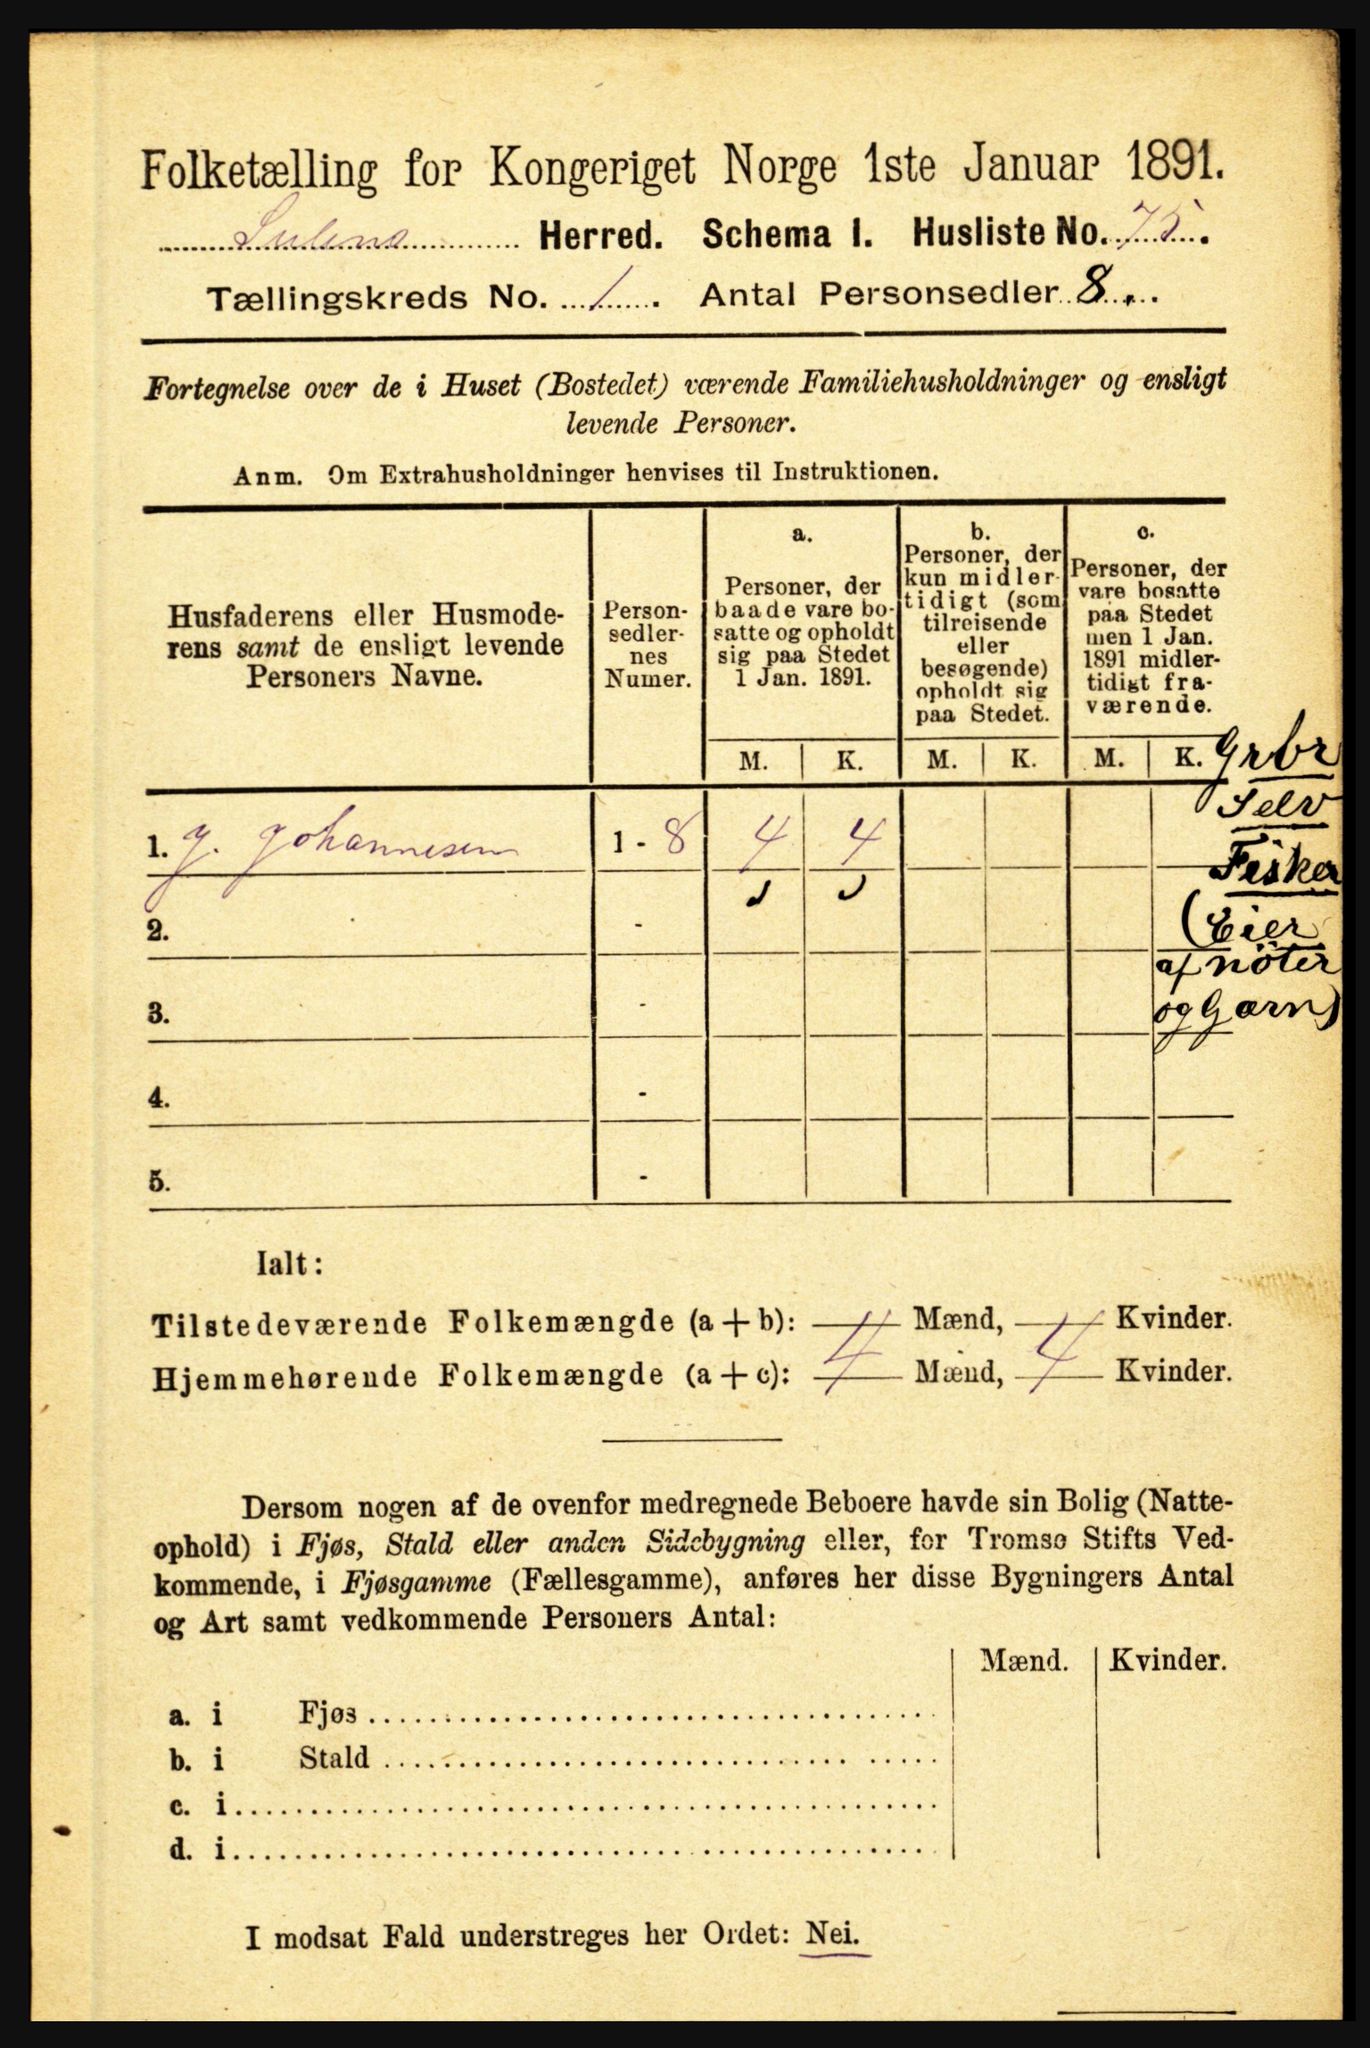 Folketælling for Kongeriget Norge 1ste Januar 1891.
Sulens Herred. Schema I. Husliste No. 75.
Tællingskreds No. 1. Antal Personsedler 8.
Fortegnelse over de i Huset (Bostedet) værende Familiehusholdninger og ensligt
levende Personer.
Anm. Om Extrahusholdninger henvises til Instruktionen.
Husfaderens eller Husmode-
rens samt de ensligt levende
Personers Navne.
Person-
sedler-
nes
Numer.
a.
Personer, der
baade vare bo-
satte og opholdt
sig paa Stedet
1 Jan. 1891.
b.
Personer, der
kun midler-
tidigt (som
tilreisende
eller
besøgende)
opholdt sig
paa Stedet.
c.
Personer, der
vare bosatte
paa Stedet
men 1 Jan.
1891 midler-
tidigt fra-
værende.
M. K. M. K. M. K.
Grbr
Selv
Fisker
(Eier
af nöter
og Garn)
1. J. Johannesen 1 - 8 4 4
2. -
3. -
4. -
5. -
Ialt:
Tilstedeværende Folkemængde (a + b): 4 Mænd, 4 Kvinder.
Hjemmehørende Folkemængde (a + c): 4 Mænd, 4 Kvinder.
Dersom nogen af de ovenfor medregnede Beboere havde sin Bolig (Natte-
ophold) i Fjøs, Stald eller anden Sidebygning eller, for Tromsø Stifts Ved-
kommende, i Fjøsgamme (Fællesgamme), anføres her disse Bygningers Antal
og Art samt vedkommende Personers Antal:
Mænd. Kvinder.
a. i Fjøs
b. i Stald
c. i
d. i
I modsat Fald understreges her Ordet: Nei.